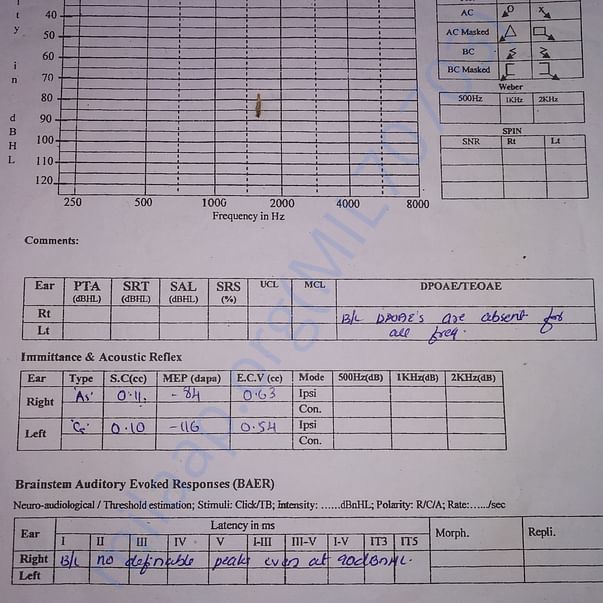 40
50
60
70
80
90
100
110
120
i t y i n d B H L
250 500 1000 2000 4000 8000
Frequency in Hz
AC O X
AC Masked
BC < >
BC Masked [ ]
Weber
500Hz 1KHz 2KHz
SPIN
SNR Rt Lt
Comments:
Ear PTA (dBHL) SRT (dBHL) SAL (dBHL) SRS (%) UCL MCL DPOAE/TEOAE
Rt B/L DPOAE's are absent for
Lt all freq.
Immittance & Acoustic Reflex
Ear Type S.C(cc) MEP (dapa) E.C.V (cc) Mode 500Hz(dB) 1KHz(dB) 2KHz(dB)
Right 'As' 0.11, -84 0.63 Ipsi
Con.
Left 0.10 -116 0.54 Ipsi
Con.
Brainstem Auditory Evoked Responses (BAER)
Neuro-audiological / Threshold estimation; Stimuli: Click/TB; Intensity: ......dBnHL; Polarity: R/C/A; Rate:...../sec
Ear Latency in ms Morph. Repli.
I II III IV V I-III III-V I-V IT3 IT5
Right B/L no definable peaks even at 90dBnHL.
Left
milaap.org(MIL707037)